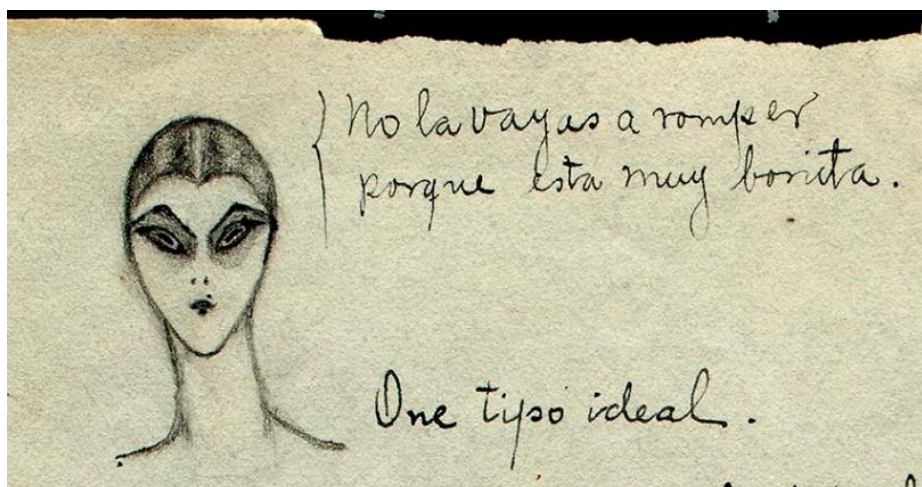 No la vayas a romper
porque esta muy bonita.
One tipo ideal.